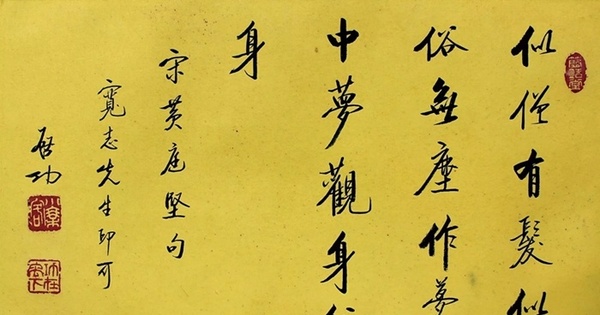 似僧有髮似
俗無塵作夢
中夢觀身
身
宋黄庭堅句
寬志先生印可
启功